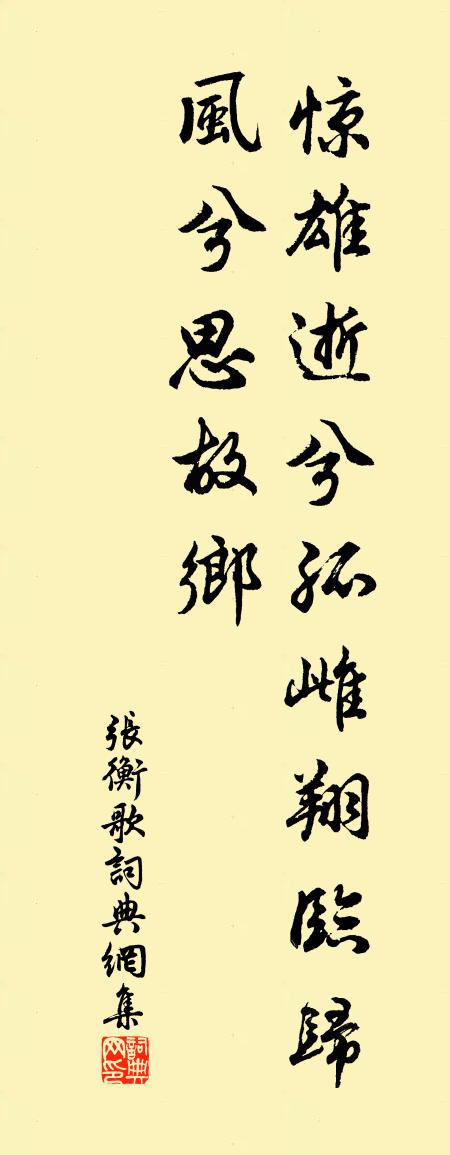 惊雄逝兮孤雌翔臨歸
風兮思故鄉
張衡歌詞典網集
詞典网印